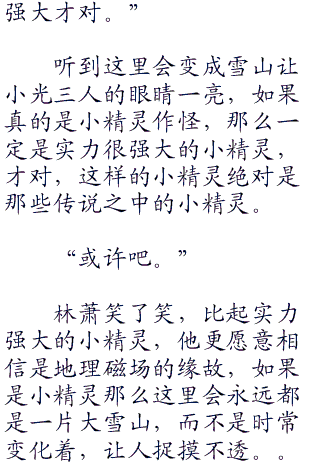 强大才对。”
听到这里会变成雪山让
小光三人的眼睛一亮，如果
真的是小精灵作怪，那么一
定是实力很强大的小精灵，
才对，这样的小精灵绝对是
那些传说之中的小精灵。
“或许吧。”
林萧笑了笑，比起实力
强大的小精灵，他更愿意相
信是地理磁场的缘故，如果
是小精灵那么这里会永远都
是一片大雪山，而不是时常
变化着，让人捉摸不透。。